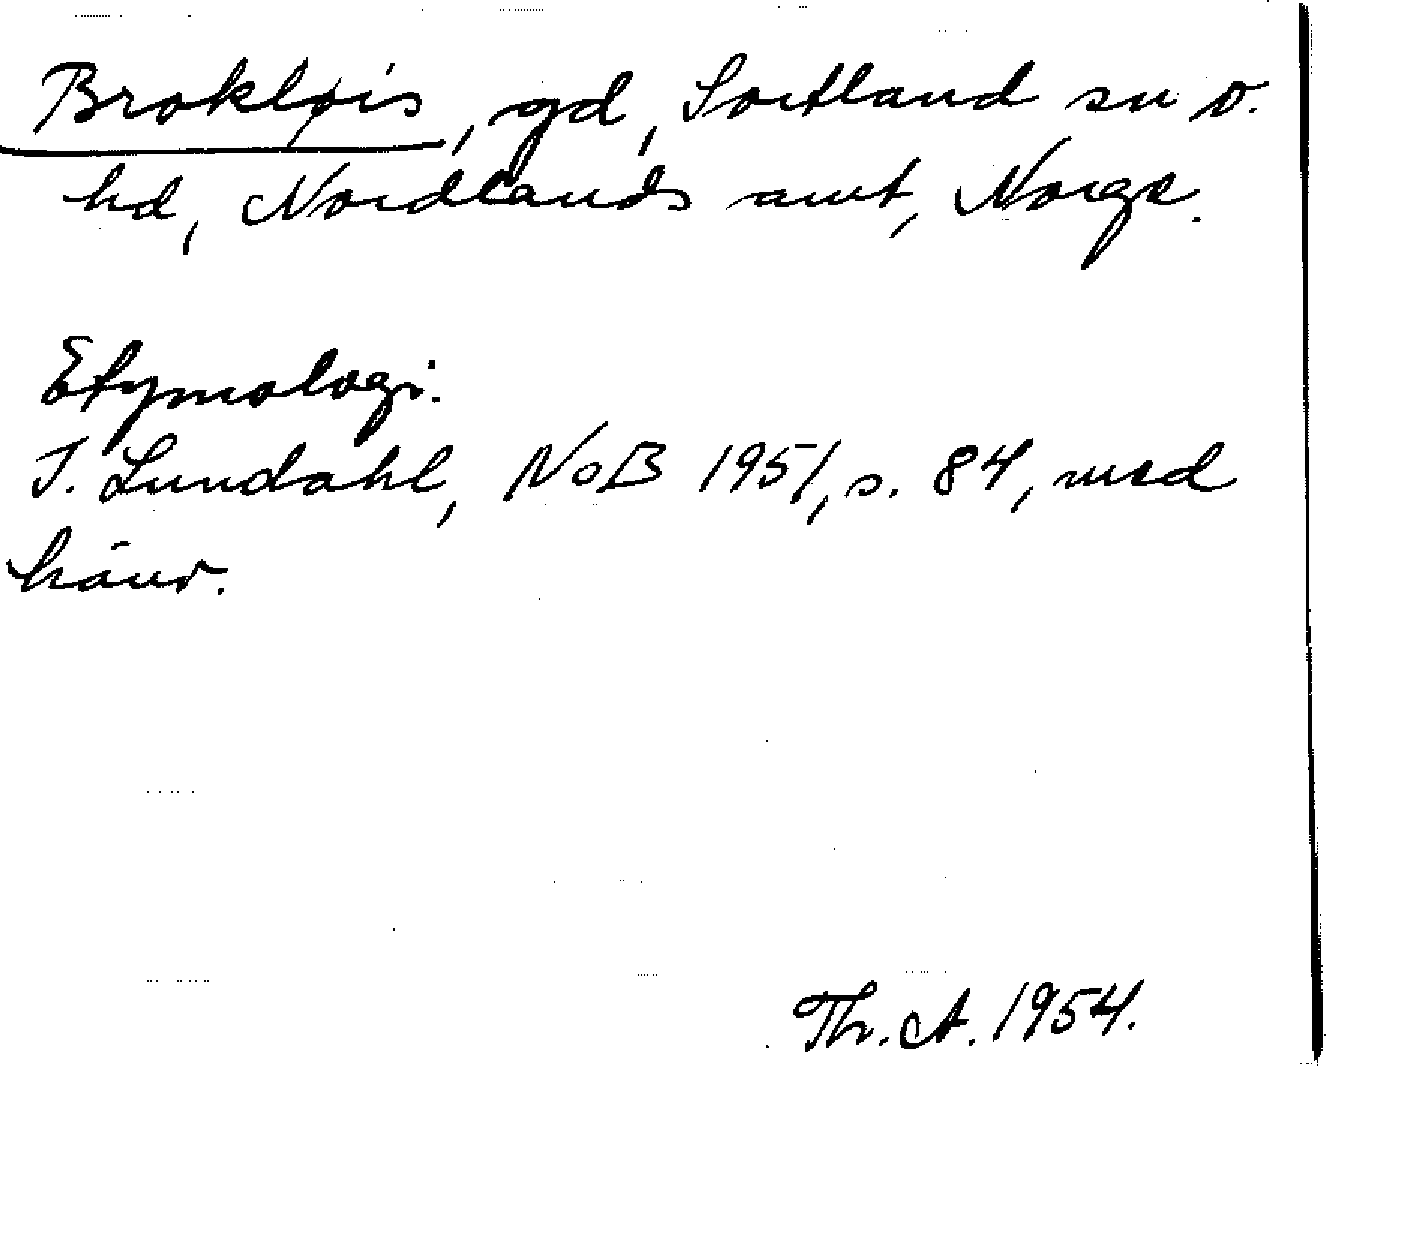 Brokløis, gd, Sortland sn o.
hd, Nordlands amt, Norge.
Etymologi:
I. Lundahl, NoB 1951, s. 84, med
hänv.
Th. A. 1954.